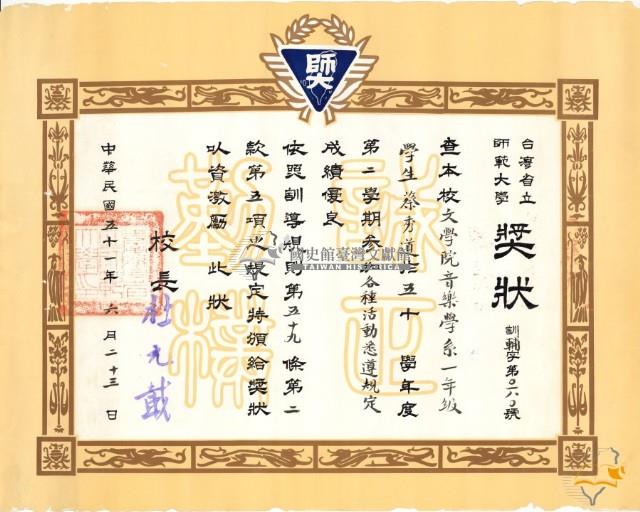 師大
台灣省立
師範大學
獎狀
訓輔字第0一八0號
查本校文學院音樂學系一年級
學生蔡秀道在五十學年度
第二學期參加各種活動悉遵規定
成績優良
依照訓導規則第五十九條第二
款第五項之規定特頒給獎狀
以資激勵此狀
校長杜元載
中華民國五十一年六月二十三日
誠正
勤樸
國史館臺灣文獻館
TAIWAN HISTORICA